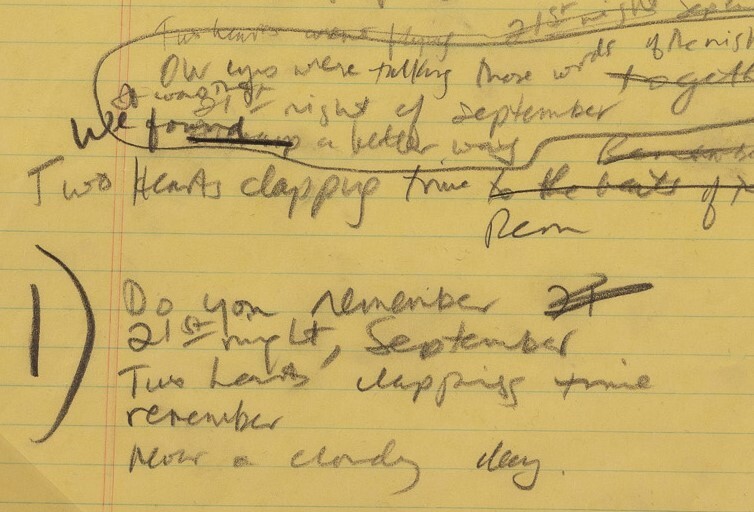 Two hearts were flying 21st night Septem
Our eyes were talking those words of the night togeth
It was the
21st night of September
We found a better way Rememb
Two Hearts clapping time to the beats of
Rem
1) Do you remember 21
21st night, September
Two hearts clapping time
remember
Never a cloudy day.